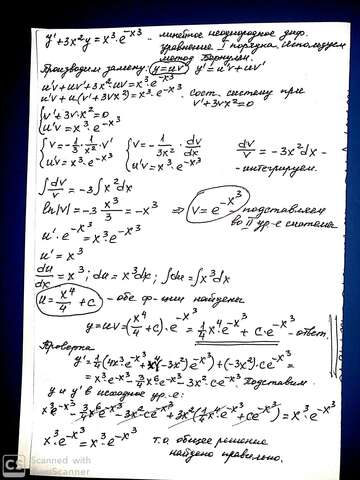 y' + 3x²y = x³·e^(-x³) -- линейное неоднородное диф.
уравнение I порядка. Используем
метод Бернулли.
Производим замену: y=uv, y' = u'v + uv'
u'v + uv' + 3x²·uv = x³·e^(-x³)
u'v + u(v' + 3vx²) = x³·e^(-x³) сост. систему при
v' + 3vx² = 0
{ v' + 3v·x² = 0
{ u'v = x³·e^(-x³)
{ v = -1/3·1/x²·v' { v = -1/(3x²)·dv/dx dv/v = -3x²dx -
{ u'v = x³·e^(-x³) { u'v = x³·e^(-x³) - интегрируем.
∫dv/v = -3∫x²dx
ln|v| = -3 x³/3 = -x³ ⇒ v = e^(-x³) - подставляем
во II ур-е системы
u'·e^(-x³) = x³·e^(-x³)
u' = x³
du/dx = x³; du = x³dx; ∫du = ∫x³dx
u = x⁴/4 + c - обе ф-ции найдены
y = uv = (x⁴/4 + c)·e^(-x³) = 1/4 x⁴·e^(-x³) + c·e^(-x³) - ответ.
Проверка
y' = 1/4(4x³·e^(-x³) + x⁴(-3x²)e^(-x³)) + (-3x²)·ce^(-x³) =
= x³·e^(-x³) - 3/4 x⁶e^(-x³) - 3x²·ce^(-x³). Подставим
y и y' в исходное ур-е:
x³e^(-x³) - 3/4 x⁶e^(-x³) - 3x²·ce^(-x³) + 3x²(1/4 x⁴·e^(-x³) + ce^(-x³)) = x³·e^(-x³)
x³·e^(-x³) = x³·e^(-x³) т.о. общее решение
найдено правильно.
CS Scanned with
CamScanner